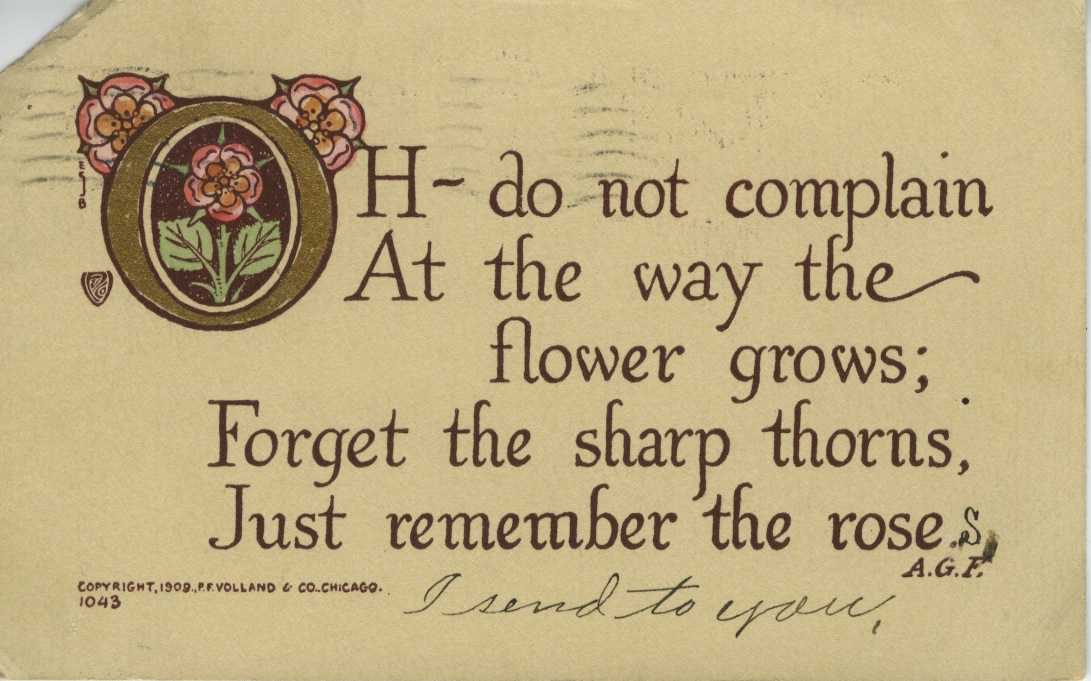 OH- do not complain
At the way the
flower grows;
Forget the sharp thorns,
Just remember the rose.s
A.G.F.
COPYRIGHT, 1909., P.F. VOLLAND & CO., CHICAGO.
1043
I send to you,